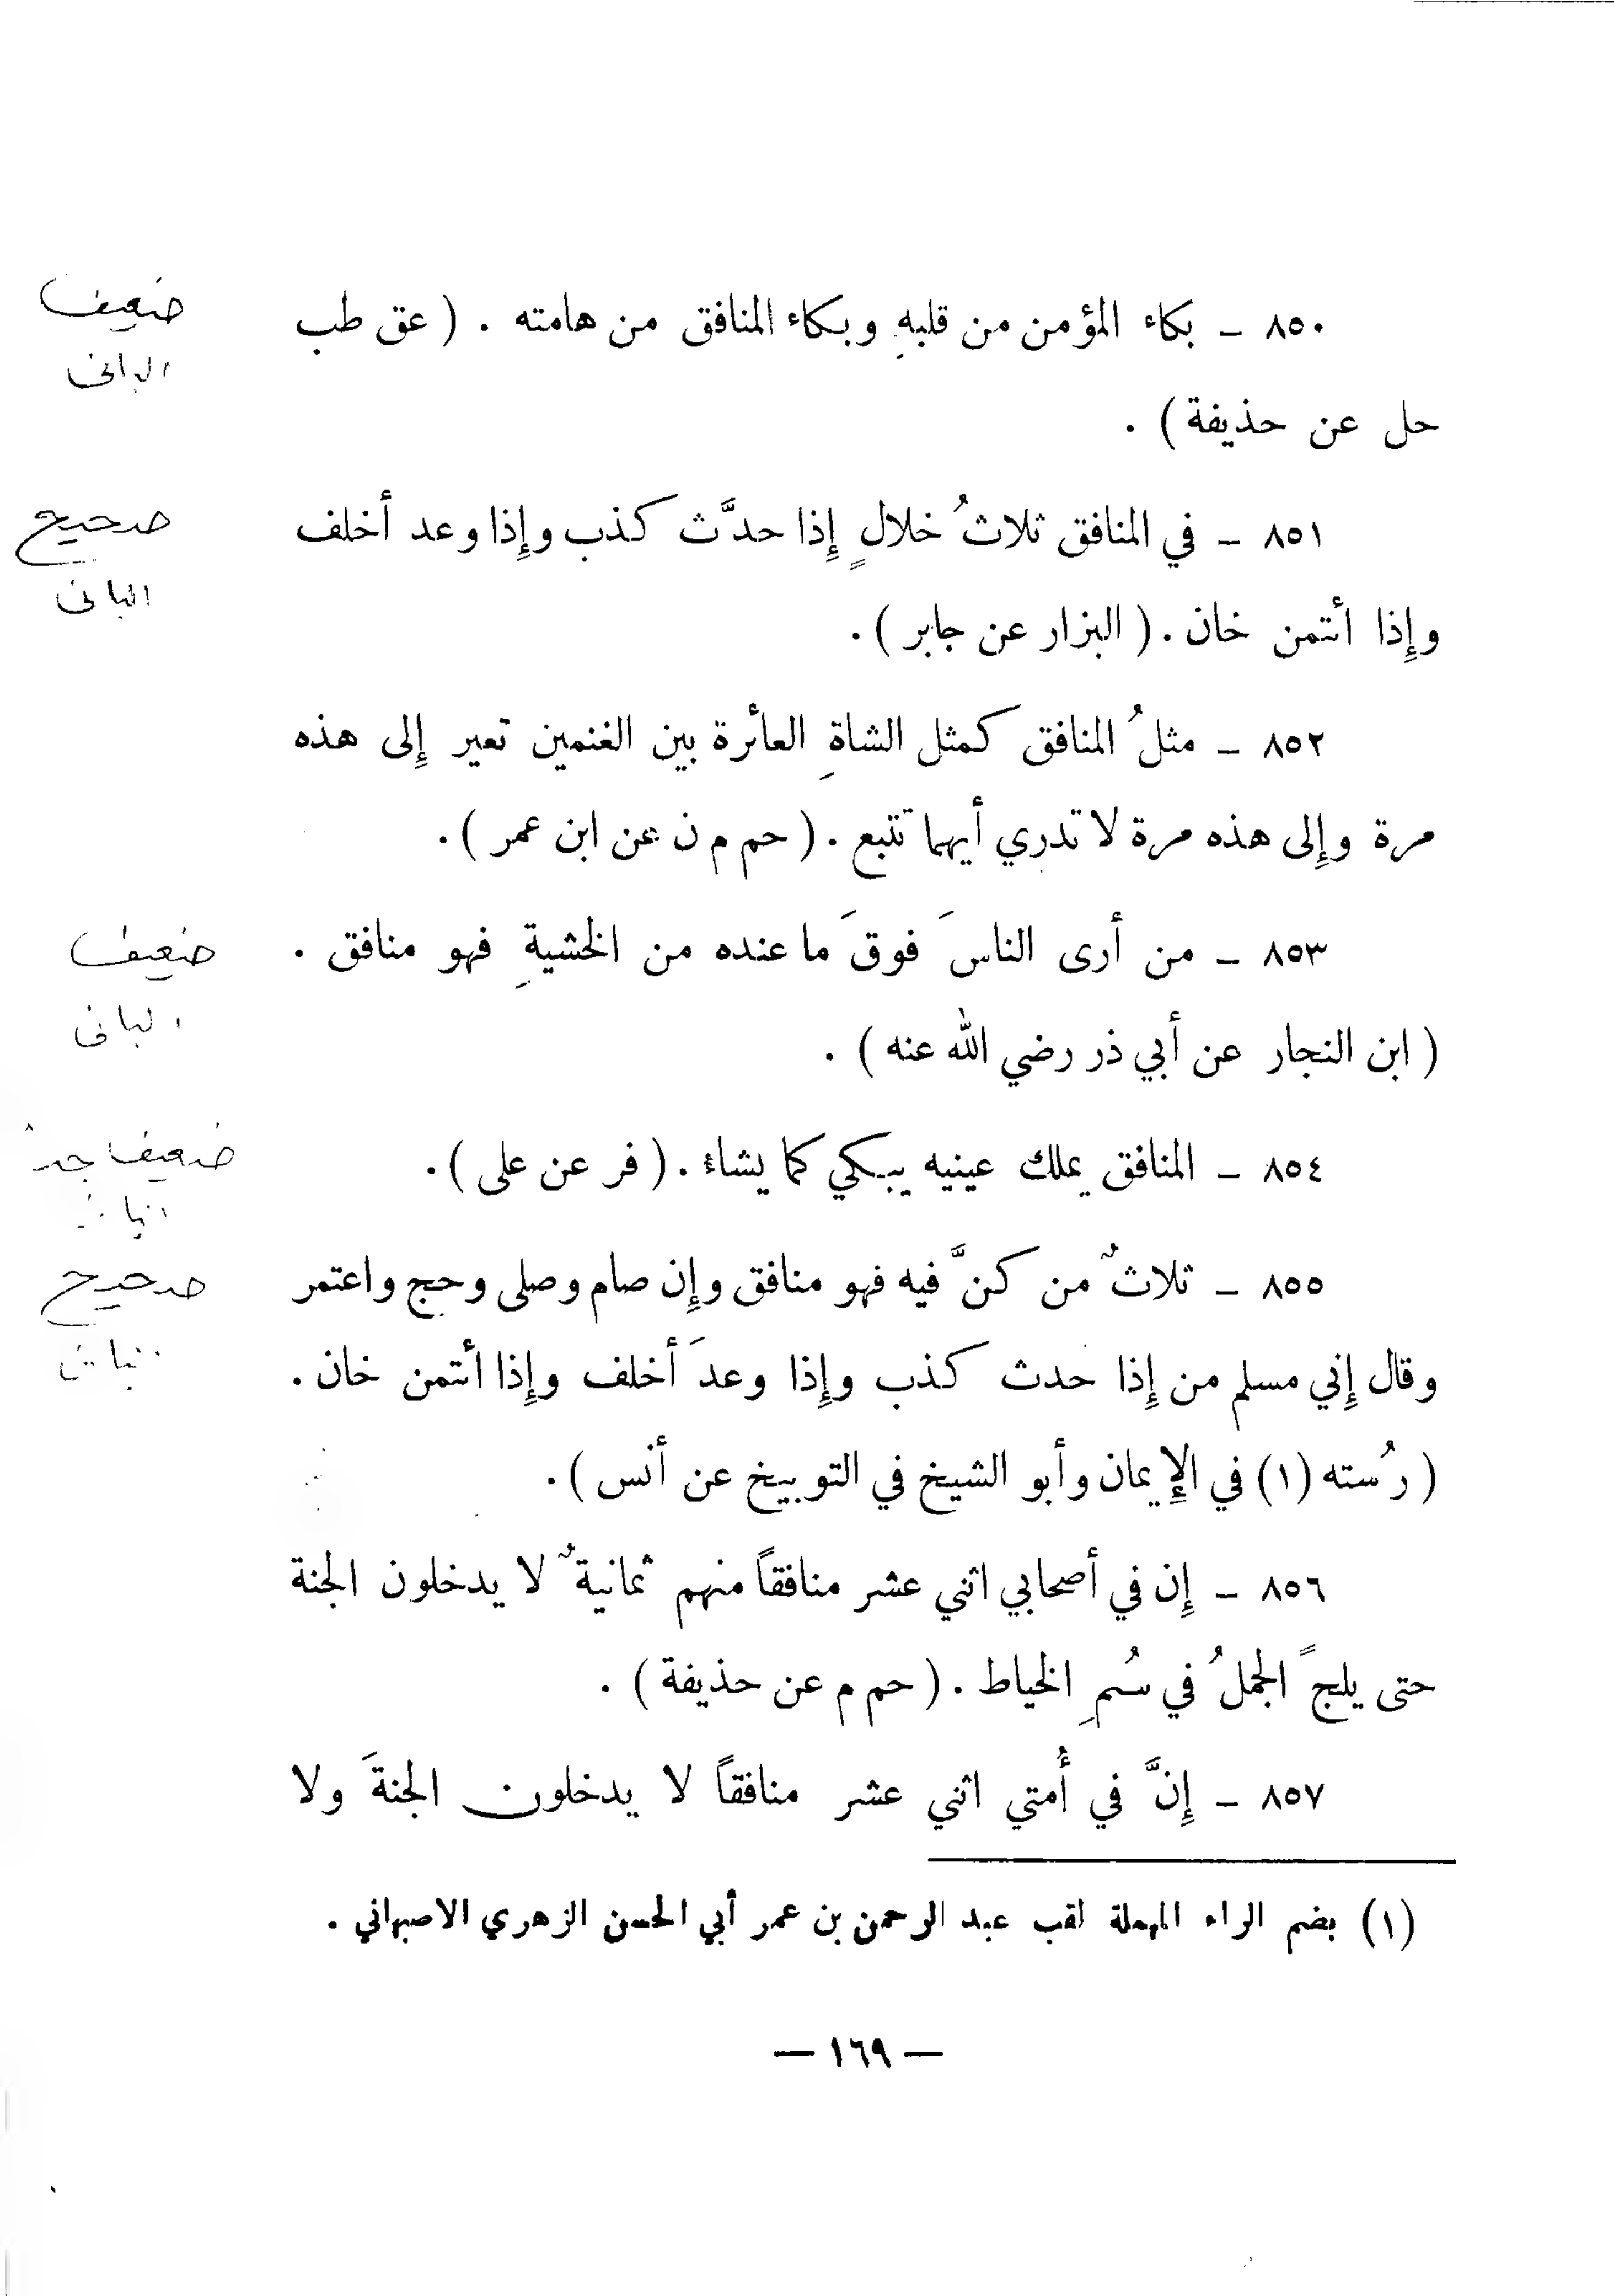 ٨٥٠ – بكاء المؤمن من قلبهِ وبكاء المنافق من هامته . ( عق طب
ضعيف
البانى
حل عن حذيفة ) .
٨٥١ – في المنافق ثلاثُ خلالٍ إِذا حدَّث كذب وإِذا وعد أخلف
صحيح
البانى
وإِذا أئتمن خان . ( البزار عن جابر ) .
٨٥٢ – مثلُ المنافق كمثل الشاةِ العائرة بين الغنمين تعير إِلى هذه
مرة وإِلى هذه مرة لا تدري أيهما تتبع . ( حم م ن عن ابن عمر ) .
٨٥٣ – من أرى الناسَ فوقَ ما عنده من الخشيةِ فهو منافق .
ضعيف
البانى
( ابن النجار عن أبي ذر رضي الله عنه ) .
٨٥٤ – المنافق يملك عينيه يبكي كما يشاء . ( فر عن على ) .
ضعيف جد
٨٥٥ – ثلاثٌ من كنَّ فيه فهو منافق وإِن صام وصلى وحج واعتمر
صحيح
وقال إِني مسلم من إِذا حدث كذب وإِذا وعدَ أخلف وإِذا أئتمن خان .
( رُسته (١) في الإِيمان وأبو الشيخ في التوبيخ عن أنس ) .
٨٥٦ – إِن في أصحابي اثني عشر منافقاً منهم ثمانيةٌ لا يدخلون الجنة
حتى يلجً الجملُ في سُمِ الخياط . ( حم م عن حذيفة ) .
٨٥٧ – إِنَّ في أُمتي اثني عشر منافقاً لا يدخلون الجنةَ ولا
(١) بضم الراء المهملة لقب عبد الرحمن بن عمر أبي الحسن الزهري الاصبهاني .
— ١٦٩ —